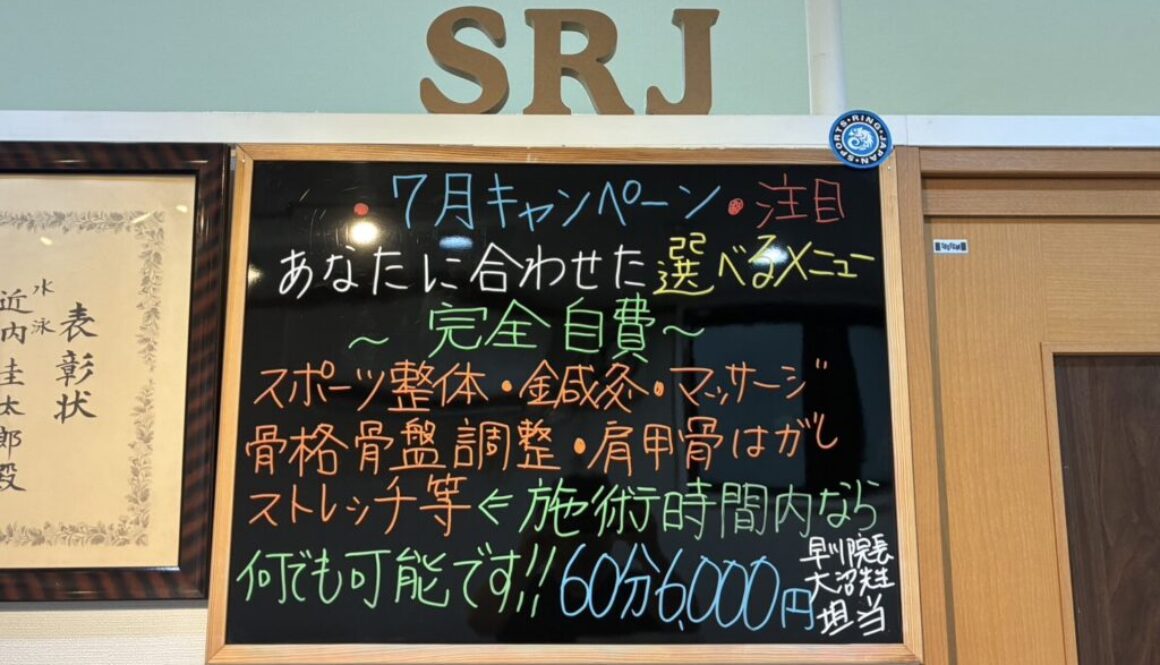 SRJ
SPORTS・RING・JAPAN
・7月キャンペーン・注目
あなたに合わせた選べるメニュー
～完全自費～
スポーツ整体・鍼灸・マッサージ
骨格骨盤調整・肩甲骨はがし
ストレッチ等←施術時間内なら
何でも可能です!!60分6,000円
早川院長
大沼先生
担当
表彰状
水泳
近内圭太郎殿